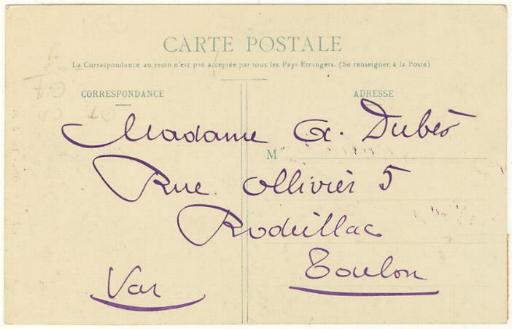 CARTE POSTALE
La Correspondance au recto n'est pas acceptée par tous les Pays Etrangers. (Se renseigner à la Poste)
CORRESPONDANCE
ADRESSE
Madame A. Dubès
M
Rue Ollivier 5
Rodeillac
Toulon
Var